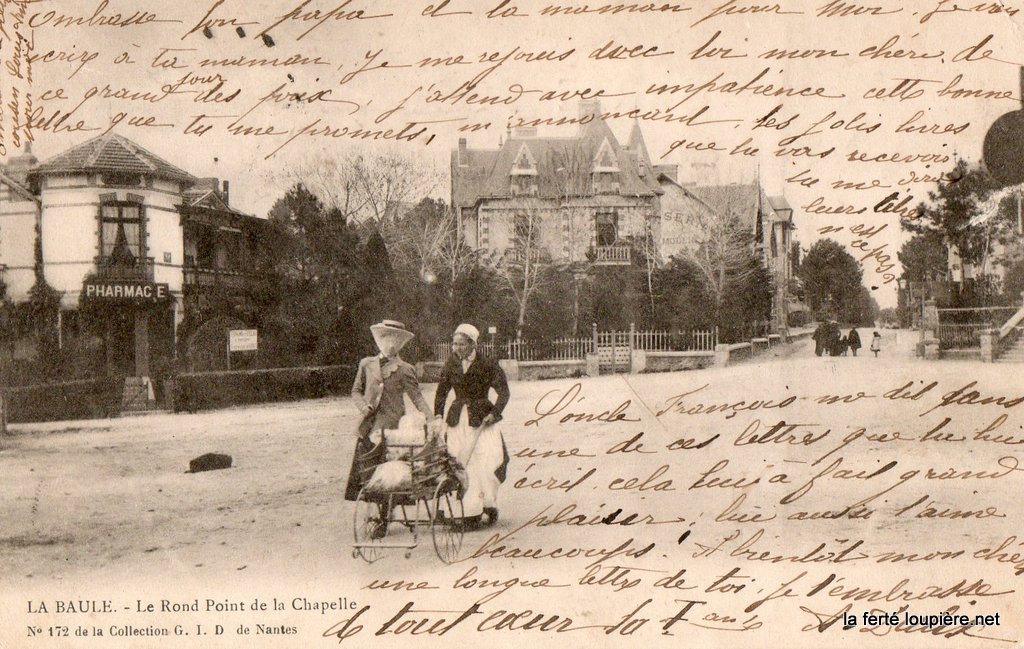 Embrasse ton papa et ta maman pour moi. Je vais
écrire à ta maman, Je me rejouis avec toi mon chéri de
ce grand jour des prix, J'attend avec impatience cette bonne
lettre que tu me promets, m'annoncant, les jolis livres
que tu vas recevoir
tu me
n'est
ce pas
PHARMACIE
L'oncle François me dit dans
une de ces lettres que tu lui
écrit, cela lui à fait grand
plaisir, lui aussi t'aime
beaucoups. A bientôt mon cher
une longue lettre de toi, Je t'embrasse
de tout cœur ta
LA BAULE. - Le Rond Point de la Chapelle
N° 172 de la Collection G. I. D de Nantes
la ferté loupière.net